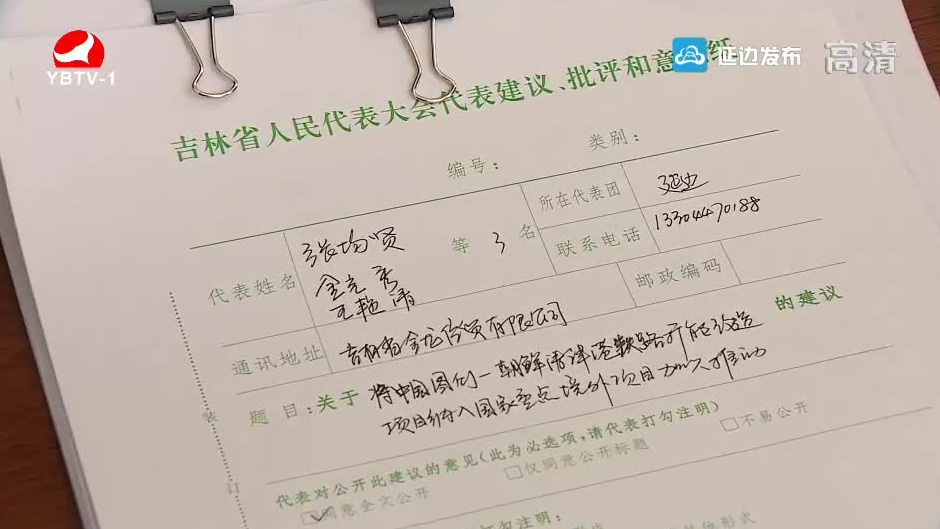 YBTV-1
延边发布
高清
吉林省人民代表大会代表建议、批评和意 纸
编号：
类别：
代表姓名
张均贤
金光秀
王艳清
等 3 名
所在代表团
延边
联系电话
13304470188
通讯地址
吉林省金龙经贸有限公司
邮政编码
题目：关于
将中国图们—朝鲜清津港铁路扩能改造
项目纳入国家重点境外项目加以推动
的建议
装
订
代表对公开此建议的意见(此为必选项,请代表打勾注明)
同意全文公开
仅同意公开标题
不易公开
打勾注明：